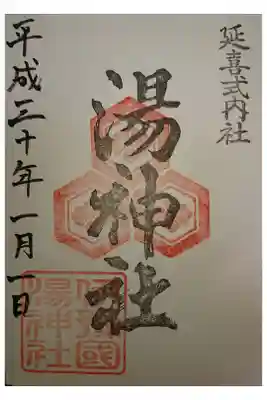 延喜式内社
湯神社
平成三十年一月一日
伊豫國
湯神社